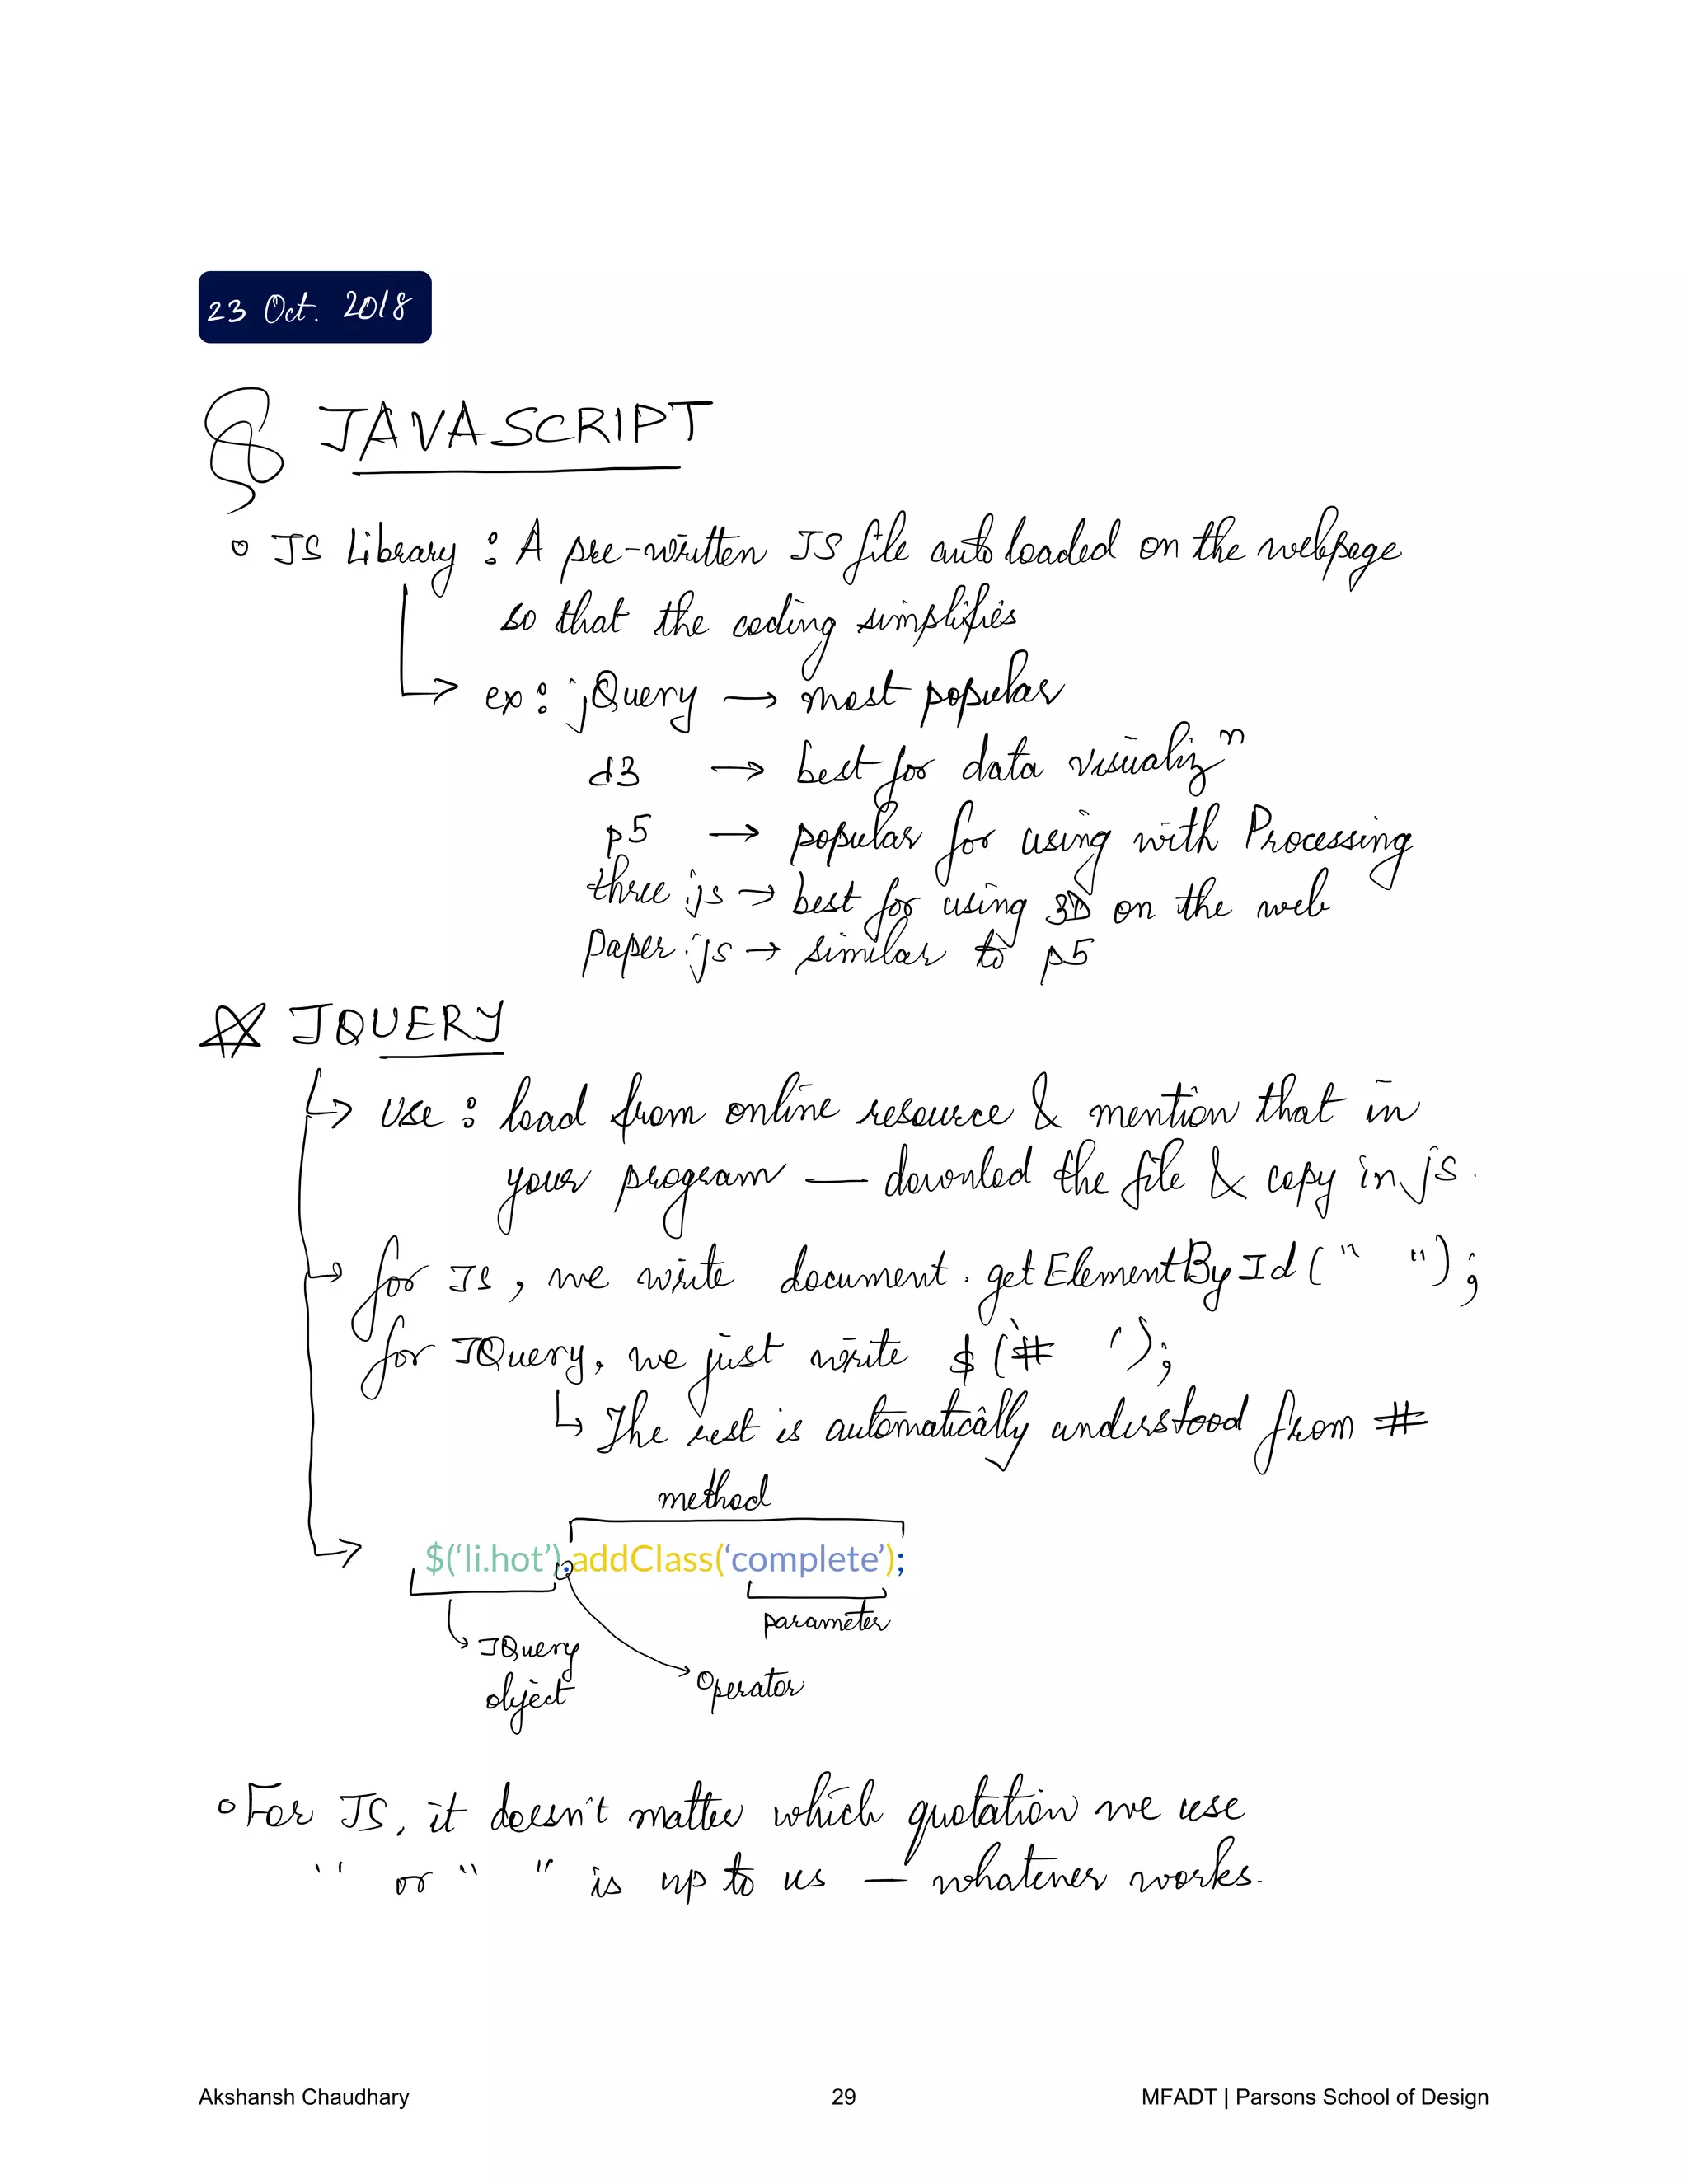 23 Oct. 2018
§ JAVASCRIPT
o JS Library : A pre-written JS file auto loaded on the webpage
so that the coding simplifies
ex : jQuery → most popular
d3 → best for data visualizⁿ
p5 → popular for using with Processing
three.js → best for using 3D on the web
Paper.js → similar to p5
☆ JQUERY
↳ Use : load from online resource & mention that in
your program — downlod the file & copy in js.
↳ for JS, we write document.getElementById(" ");
for JQuery, we just write $('# ');
↳ The rest is automatically understood from #
method
→ $(‘li.hot’).addClass(‘complete’);
parameter
↳ JQuery
object
Operator
o For JS, it doesn't matter which quotation we use
' ' or " " is up to us — whatever works.
Akshansh Chaudhary 29 MFADT | Parsons School of Design